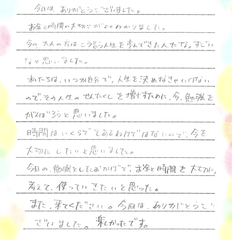 今日は、ありがとうございました。
お金と時間の大切さがよくわかりました。
今の大人の方はこういう人生を歩んできたんだな。すごい
なと思いました。
私たちは、いつか自分で、人生を決めなきゃいけない
ので、その人生のせんたくしを増やすために、今、勉強を
がんばろうと思いました。
時間はいくらでもあるわけではないので、今を
大切にしたいと思いました。
今日の、勉強をしたおかげで、お金と時間を大切に
考えて、使っていきたいと思った。
また、来てください。今日は、ありがとうご
ざいました。楽しかったです。